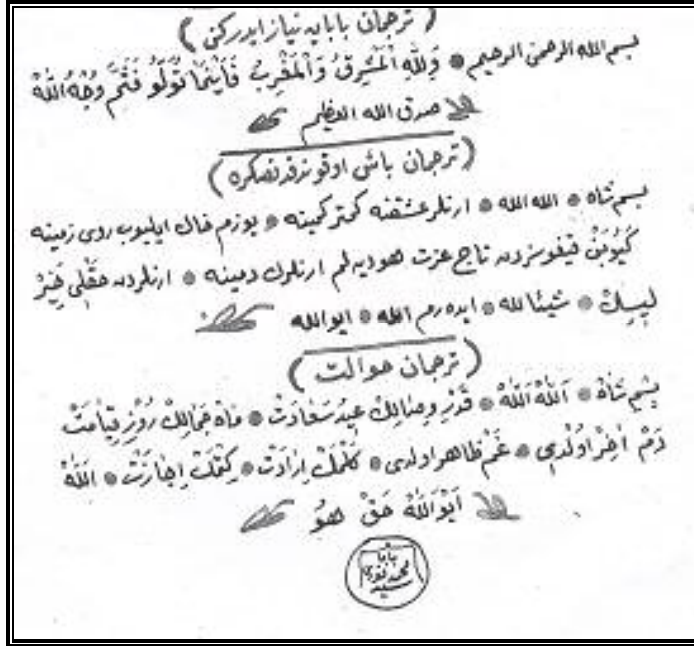 ( ترجمان بابایه نیاز ایدرکن )
بسم الله الرحمن الرحیم * وَلِلّٰهِ الْمَشْرِقُ وَالْمَغْرِبُ فَأَیْنَمَا تُوَلُّوا فَثَمَّ وَجْهُ اللّٰهْ
صدق الله العظیم
( ترجمان باش اوقوندقدنصکره )
بسم شاه * الله الله * ارنلر عشقنه کمتر کمینه * یوزم خاک ایلیوب روی زمینه
قپوسنده تاج عزت هو دیه لم ارنلرك دمینه * ارنلردن
* شیئا لله * ایده رم الله * ایوالله
( ترجمان حوالت )
بسم شاهْ * اَللهْ اَللهْ * وصالك عید سعادت * ماه جمالك روز قیامت
دَمْ آخِرْ اولدی * غم ظاهر اولدی * کلمك ارادت * کتمك اجازت * اللهْ
اَیْوَاللهْ حَقْ هُوْ
بابا
محمد
سید